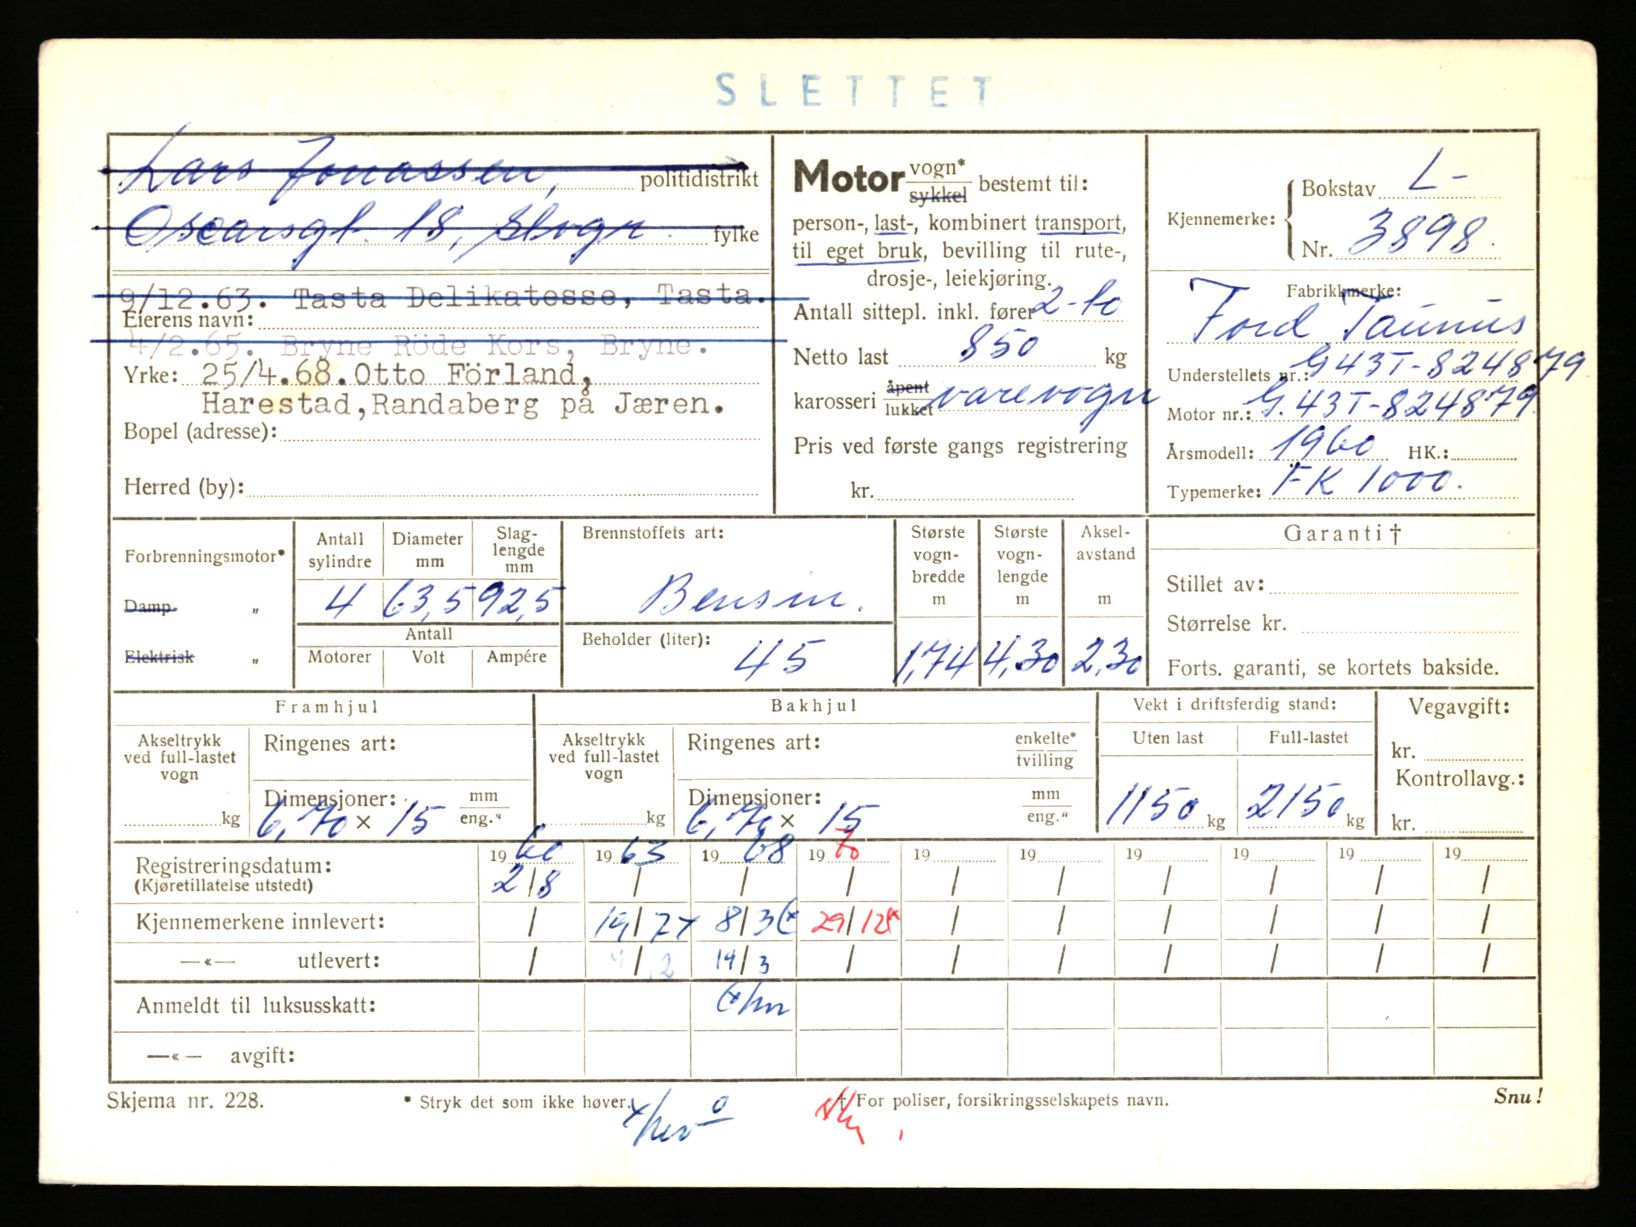 SLETTET
Lars Jonassen, politidistrikt
Oscarsgt. 18, Stvgr fylke
9/12.63. Tasta Delikatesse, Tasta.
Eierens navn:
4/2.65. Bryne Röde Kors, Bryne.
Yrke: 25/4.68. Otto Förland,
Harestad, Randaberg på Jæren.
Bopel (adresse):
Herred (by):
Motor vogn* sykkel bestemt til:
person-, last-, kombinert transport,
til eget bruk, bevilling til rute-,
drosje-, leiekjøring.
Antall sittepl. inkl. fører 2-to
Netto last 850 kg
karosseri åpent lukket varevogn
Pris ved første gangs registrering
kr.
Kjennemerke: Bokstav L-
Nr. 3898.
Fabrikkmerke:
Ford Taunus
Understellets nr.: G43T-824879
Motor nr.: G.43T-824879
Årsmodell: 1960 HK.:
Typemerke: FK 1000.
Forbrenningsmotor*
Damp. „
Elektrisk „
Antall sylindre
Diameter mm
Slag-lengde mm
4 63,5 92,5
Antall
Motorer Volt Ampére
Brennstoffets art:
Bensin.
Beholder (liter):
45
Største vogn-bredde m
Største vogn-lengde m
Aksel-avstand m
1,74 4,30 2,30
Garanti †
Stillet av:
Størrelse kr.
Forts. garanti, se kortets bakside.
Framhjul
Akseltrykk ved full-lastet vogn
kg
Ringenes art:
Dimensjoner: mm eng."
6,70 × 15
Bakhjul
Akseltrykk ved full-lastet vogn
kg
Ringenes art: enkelte* tvilling
Dimensjoner: mm eng."
6,70 × 15
Vekt i driftsferdig stand:
Uten last Full-lastet
1150 kg 2150 kg
Vegavgift:
kr.
Kontrollavg.:
kr.
Registreringsdatum: 1960 1963 1968 1970 19 19 19 19 19 19
(Kjøretillatelse utstedt) 2/8 / / / / / / / / /
Kjennemerkene innlevert: / 19/7 8/3 29/12 / / / / / /
—«— utlevert: / / 14/3 / / / / / / /
Anmeldt til luksusskatt:
—«— avgift:
Skjema nr. 228.
* Stryk det som ikke høver.
† For poliser, forsikringsselskapets navn.
Snu!